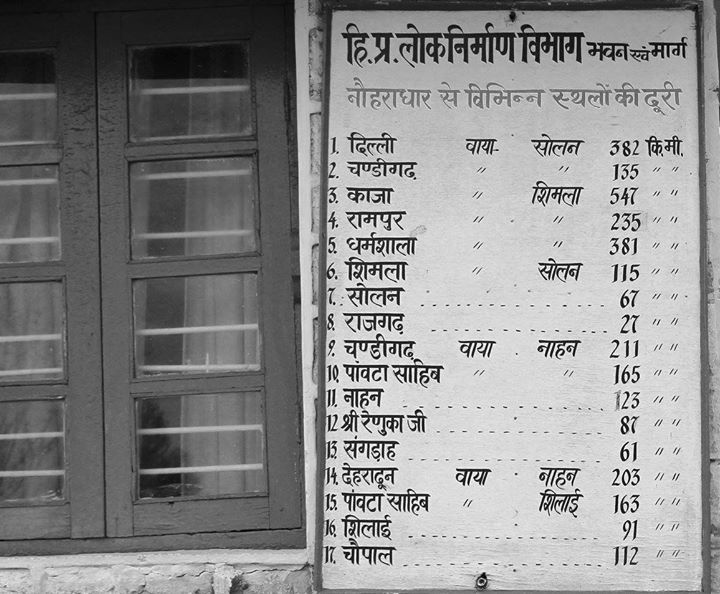 हि.प्र.लोक निर्माण विभाग भवन एवं मार्ग
नौहराधार से विभिन्न स्थलों की दूरी
1. दिल्ली वाया- सोलन 382 कि.मी.
2. चण्डीगढ़ " " 135 " "
3. काजा " शिमला 547 " "
4. रामपुर " " 235 " "
5. धर्मशाला " " 381 " "
6. शिमला " सोलन 115 " "
7. सोलन 67 " "
8. राजगढ़ 27 " "
9. चण्डीगढ़ वाया नाहन 211 " "
10. पांवटा साहिब " " 165 " "
11. नाहन 123 " "
12 श्री रेणुका जी 87 " "
13. संगड़ाह 61 " "
14. देहरादून वाया नाहन 203 " "
15. पांवटा साहिब " शिलाई 163 " "
16. शिलाई 91 " "
17. चौपाल 112 " "